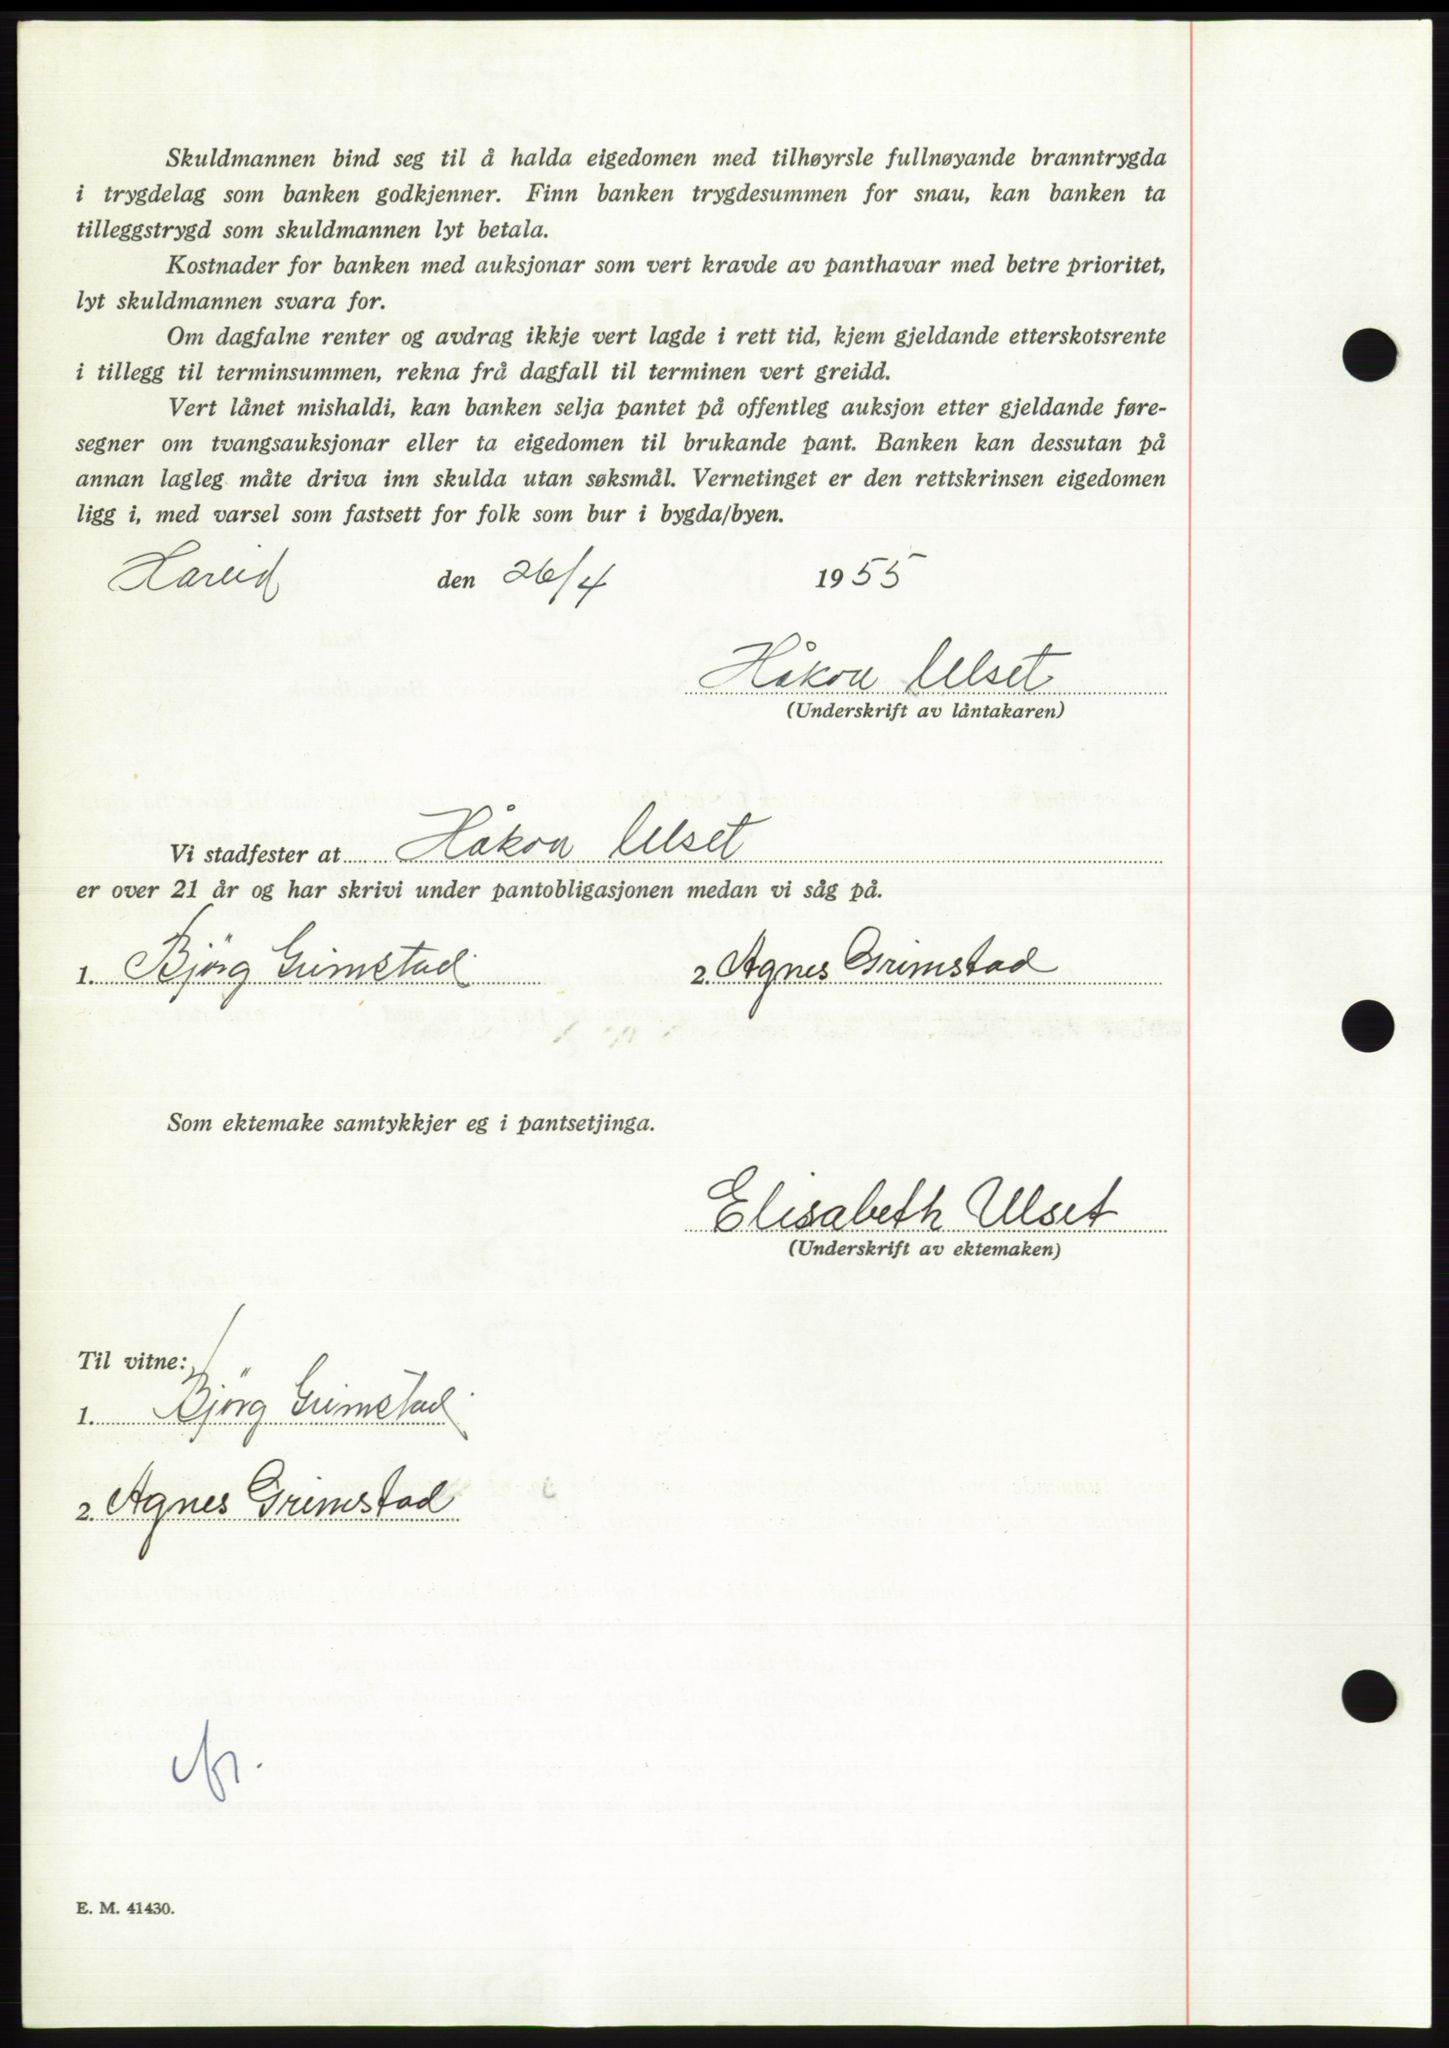 Skuldmannen bind seg til å halda eigedomen med tilhøyrsle fullnøyande branntrygda
i trygdelag som banken godkjenner. Finn banken trygdesummen for snau, kan banken ta
tilleggstrygd som skuldmannen lyt betala.
Kostnader for banken med auksjonar som vert kravde av panthavar med betre prioritet,
lyt skuldmannen svara for.
Om dagfalne renter og avdrag ikkje vert lagde i rett tid, kjem gjeldande etterskotsrente
i tillegg til terminsummen, rekna frå dagfall til terminen vert greidd.
Vert lånet mishaldi, kan banken selja pantet på offentleg auksjon etter gjeldande føre-
segner om tvangsauksjonar eller ta eigedomen til brukande pant. Banken kan dessutan på
annan lagleg måte driva inn skulda utan søksmål. Vernetinget er den rettskrinsen eigedomen
ligg i, med varsel som fastsett for folk som bur i bygda/byen.
Hareid den 26/4 1955
Håkon Ulset
(Underskrift av låntakaren)
Vi stadfester at Håkon Ulset
er over 21 år og har skrivi under pantobligasjonen medan vi såg på.
1. Björg Grimstad 2. Agnes Grimstad
Som ektemake samtykkjer eg i pantsetjinga.
Elisabeth Ulset
(Underskrift av ektemaken)
Til vitne:
1. Björg Grimstad
2. Agnes Grimstad
E. M. 41430.